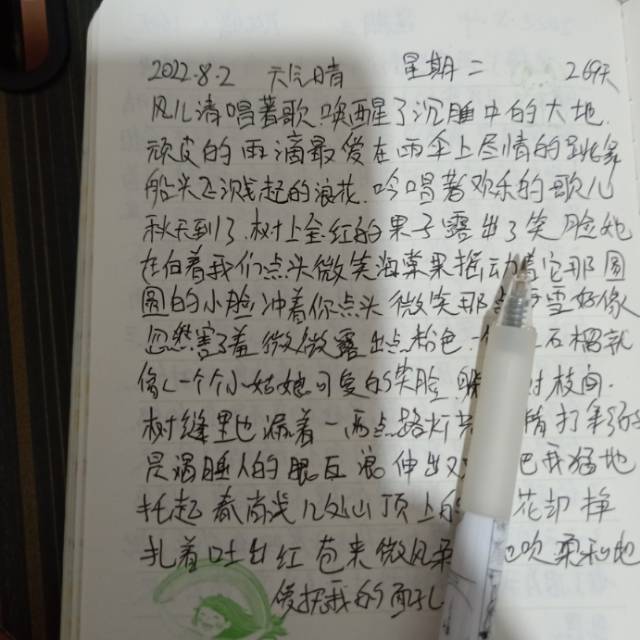 2022.8.2 天气晴 星期二 269天
风儿清唱著歌唤醒了沉睡中的大地.
顽皮的雨滴最爱在雨伞上尽情的跳舞
船头飞溅起的浪花.吟唱著欢乐的歌儿
秋天到了.树上金红的果子露出了笑脸她
在向着我们点头微笑海棠果摇动着它那圆
圆的小脸冲着你点头微笑那 雪好像
忽然害了羞微微露出点粉色一 石榴就
像一个个小姑娘可爱的笑脸 树枝间.
树缝里也漏着一两点路灯 精打彩的
是渴睡人的眼巨浪伸出 把我猛地
托起春尚浅几处山顶上的 花却挣
扎着吐出红苞来微风 吹柔和地
爱抚我的面孔